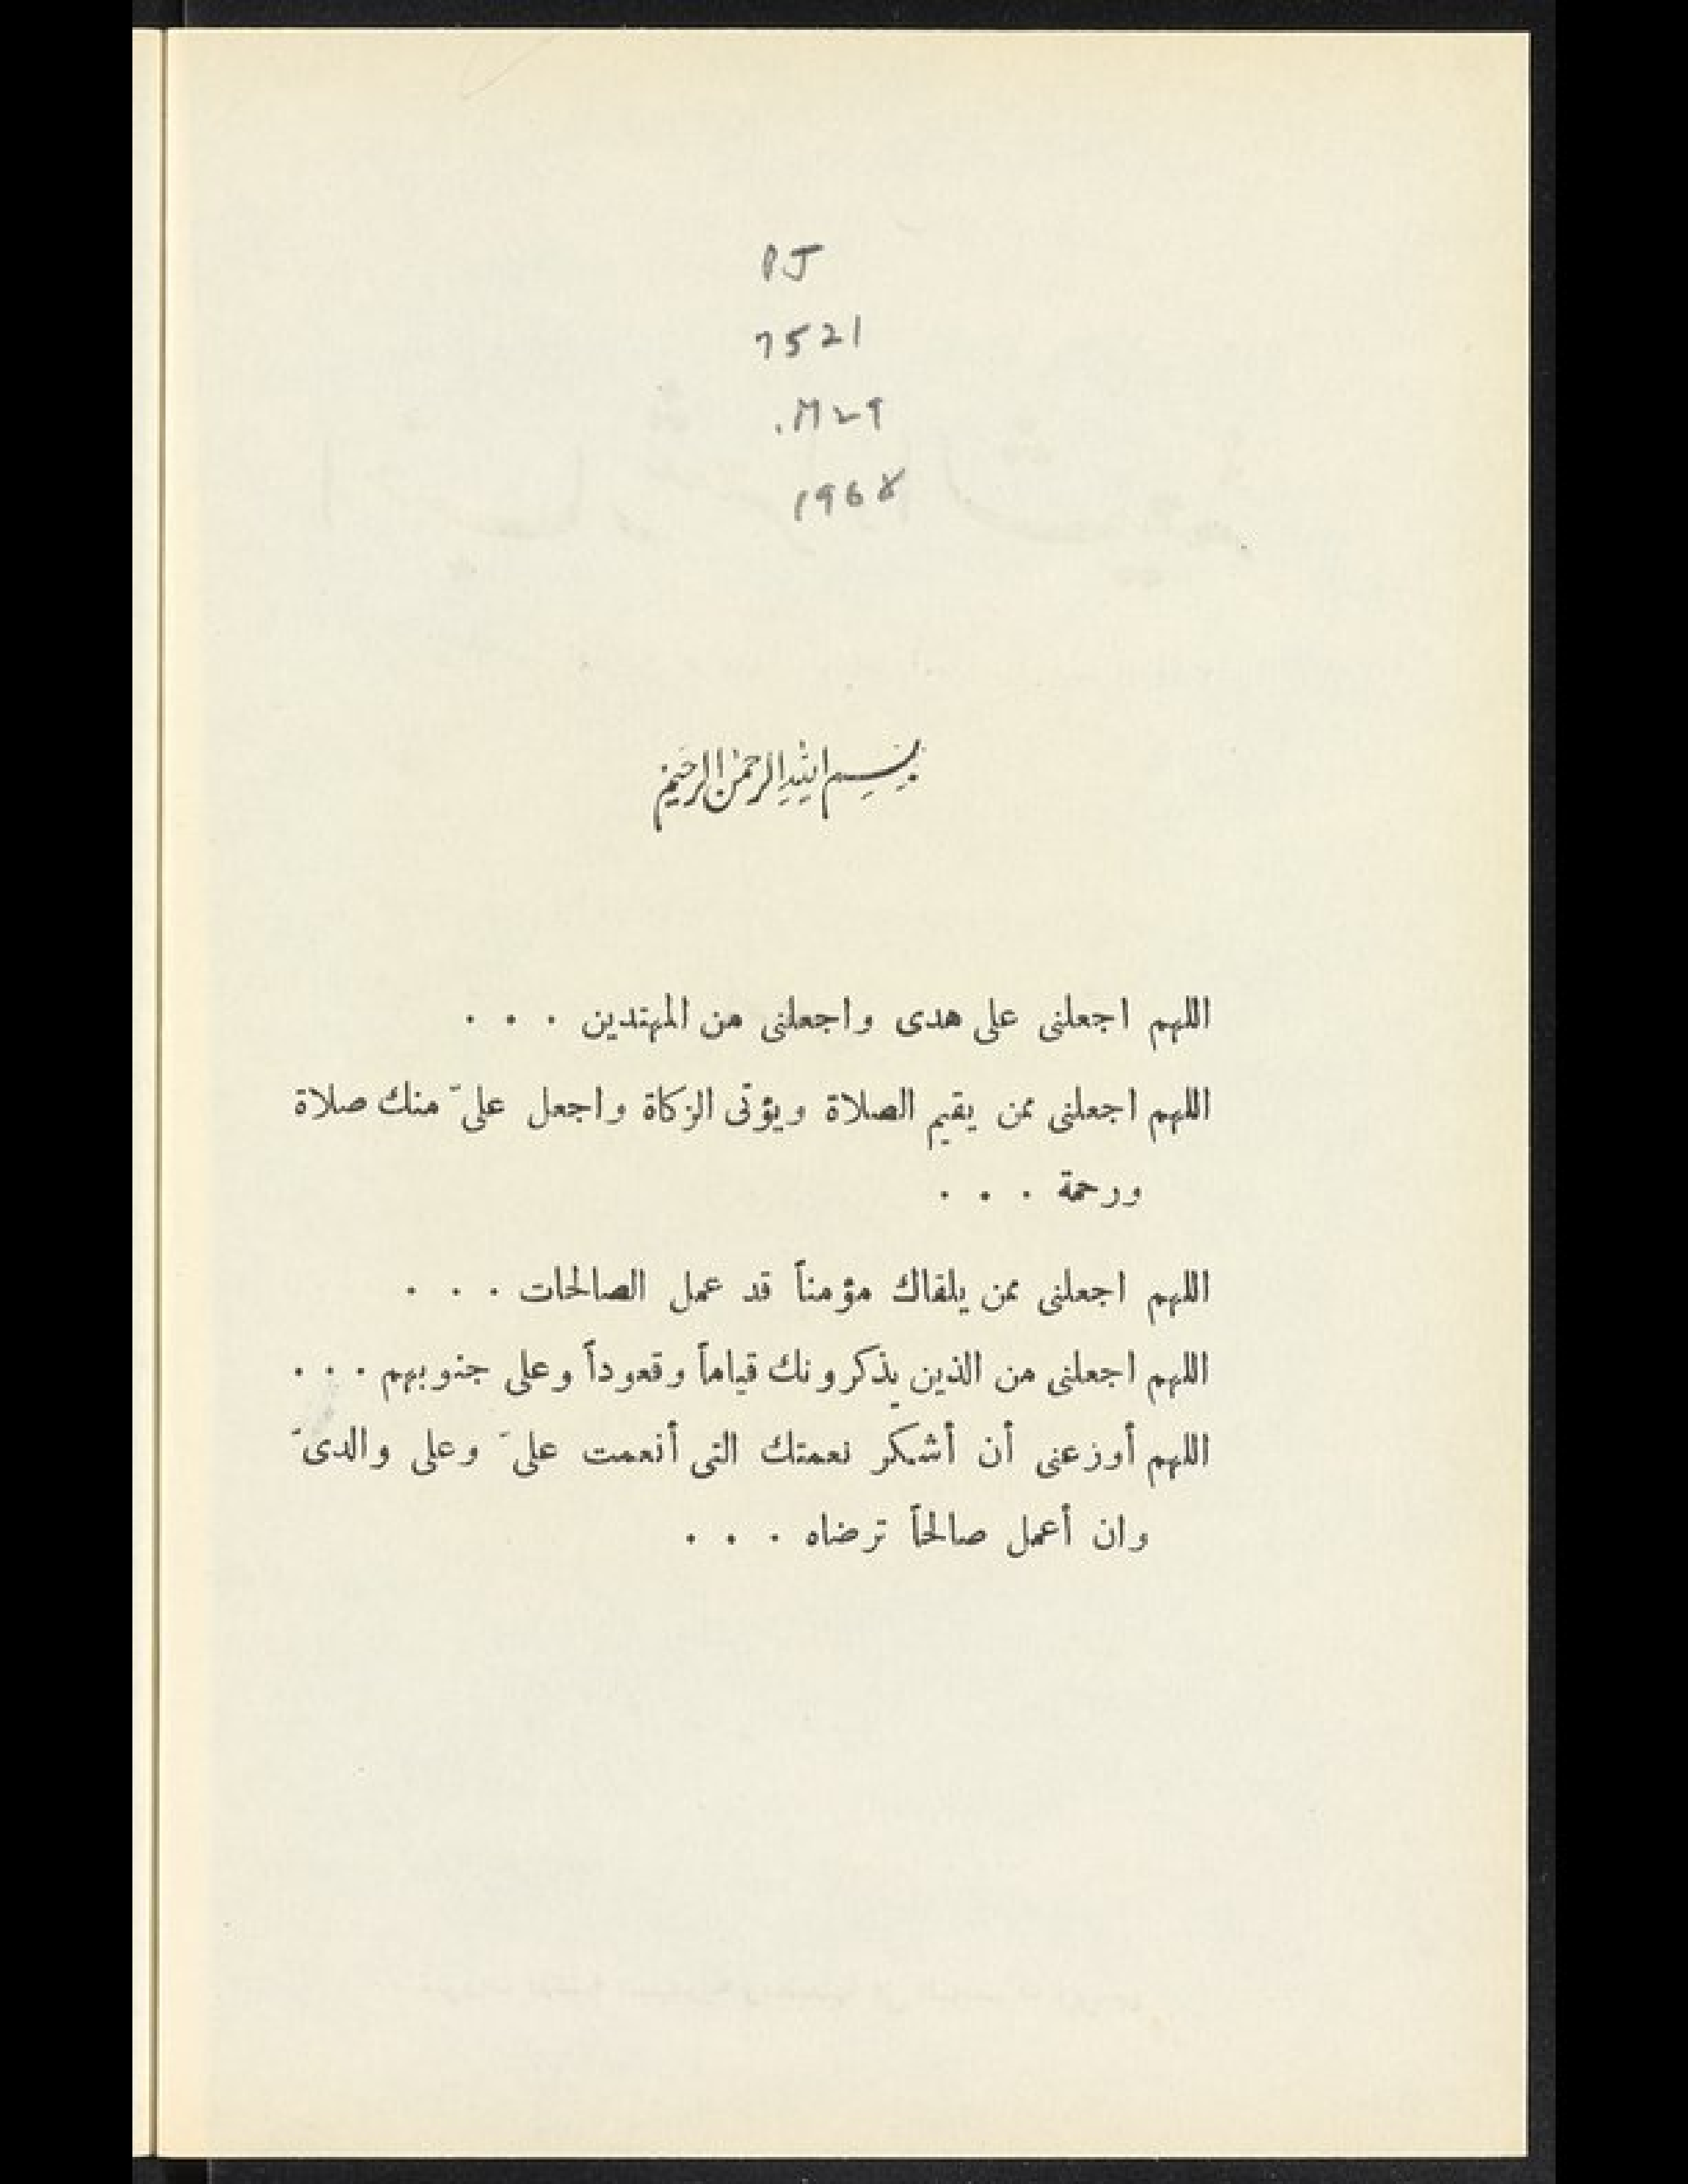 PJ
7521
.M29
1968
بسم الله الرحمن الرحيم
اللهم اجعلنى على هدى واجعلنى من المهتدين . . .
اللهم اجعلنى ممن يقيم الصلاة ويؤتى الزكاة واجعل علىّ منك صلاة
ورحمة . . .
اللهم اجعلنى ممن يلقاك مؤمناً قد عمل الصالحات . . .
اللهم اجعلنى من الذين يذكرونك قياماً وقعوداً وعلى جنوبهم . . .
اللهم أوزعنى أن أشكر نعمتك التى أنعمت علىَّ وعلى والدىَّ
وان أعمل صالحاً ترضاه . . .